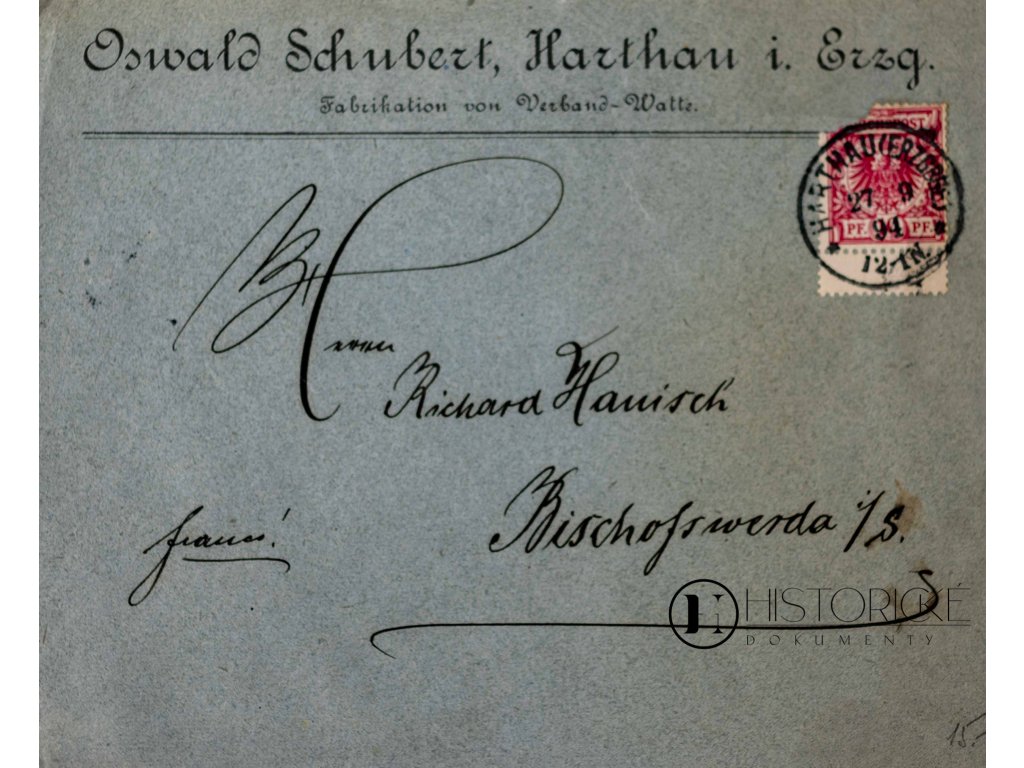 Oswald Schubert, Harthau i. Erzg.
Fabrikation von Verband-Watte.
HARTHAU (ERZGEB.)
27 9
94
12-1N.
PF. 10 PF.
Herrn
Richard Hanisch
Bischofswerda i/S.
franco!
HISTORICKÉ
DOKUMENTY
15.-